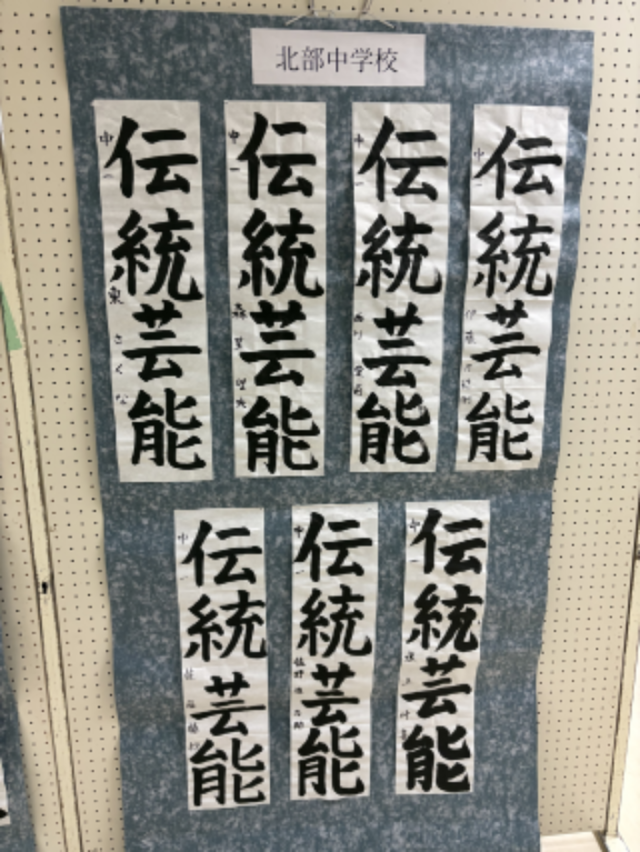 北部中学校
伝統芸能
中一
東 さくな
伝統芸能
中一
伝統芸能
中一
伝統芸能
中一
伝統芸能
中一
伝統芸能
中一
伝統芸能
中一